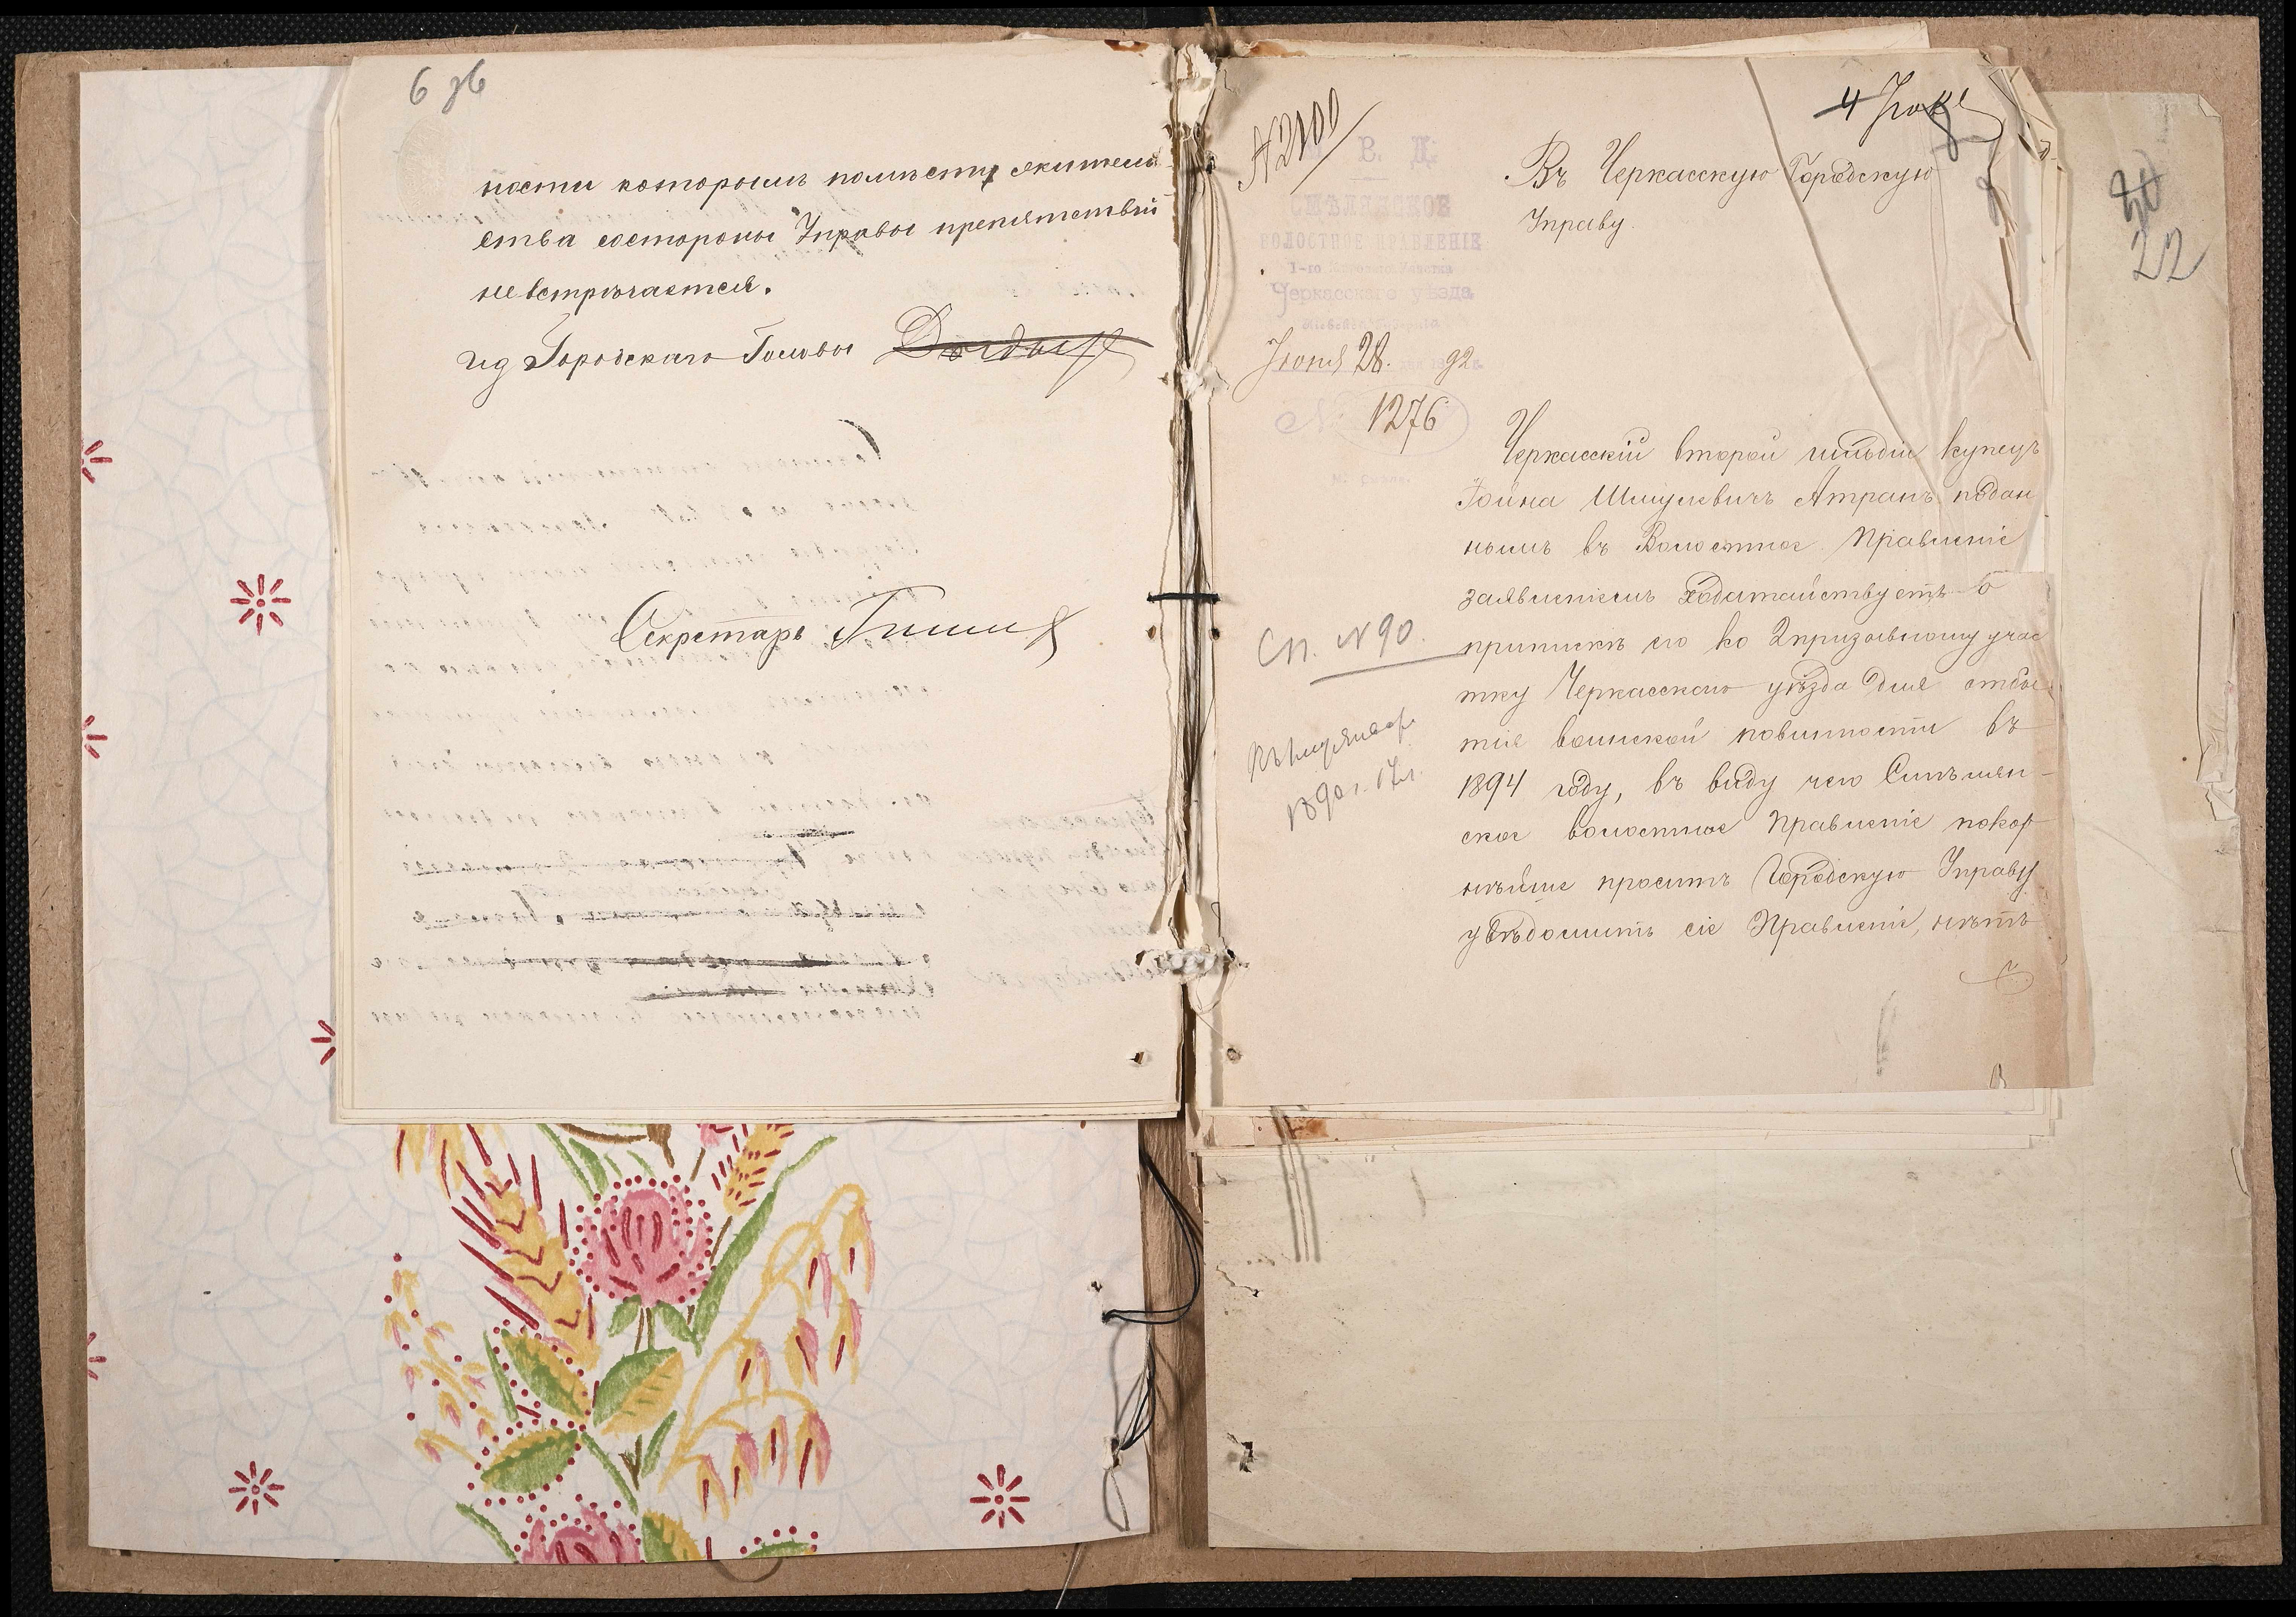 6 зв
ности которымъ по мѣсту житель
ства состороны Управы препятствій
не встрѣчается.
ид Городскаго Головы
Секретарь
№ 2100
4 Іюля
В. Д.
СМѢЛЯНСКОЕ
ВОЛОСТНОЕ ПРАВЛЕНІЕ
1-го
Черкасскаго уѣзда
Іюня 28. 92
№ 1276
Въ Черкасскую Городскую
Управу
30
22
Черкасскій второй гильдіи купецъ
Іойна Шмулевичъ Атранъ подан
нымъ въ Волостное Правленіе
заявленіемъ ходатайствуетъ о
припискѣ его ко 2 призывному учас
тку Черкасскаго уѣзда для отбы
тія воинской повинности въ
1894 году, въ виду чего Смѣлян-
ское волостное Правленіе покор
нѣйше проситъ Городскую Управу
увѣдомить сіе Правленіе, нѣтъ
Сп. № 90.
1890 г. 17 л.